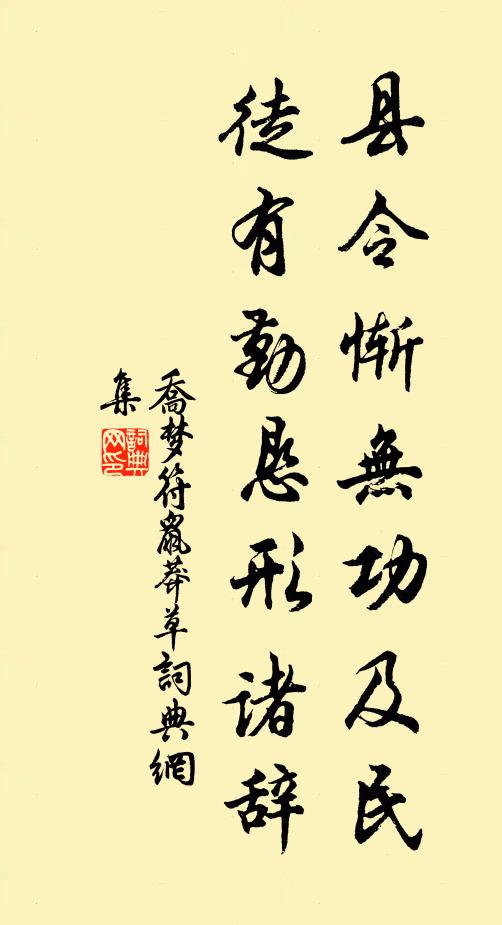 县令惭無功及民
徒有勤恳形诸辞
喬梦符鼠莽草詞典網
集
詞典网印